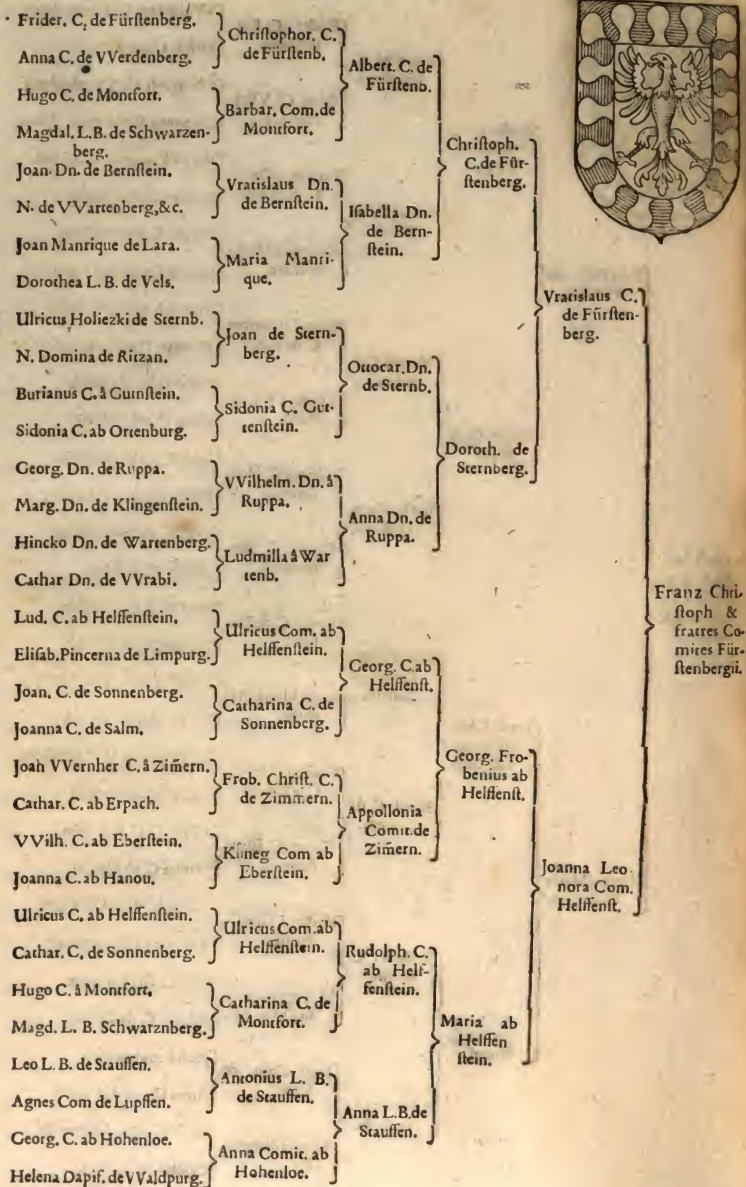 Frider. C. de Fürſtenberg.
Anna C. de VVerdenberg.
Hugo C. de Montfort.
Magdal. L. B. de Schwarzen-
berg.
Joan. Dn. de Bernſtein.
N. de VVartenberg, &c.
Joan Manrique de Lara.
Dorothea L. B. de Vels.
Ulricus Holiezki de Sternb.
N. Domina de Ritzan.
Burianus C. â Gutnſtein.
Sidonia C. ab Ortenburg.
Georg. Dn. de Ruppa.
Marg. Dn. de Klingenſtein.
Hincko Dn. de Wartenberg.
Cathar Dn. de VVrabi.
Lud. C. ab Helffenſtein.
Eliſab. Pincerna de Limpurg.
Joan. C. de Sonnenberg.
Joanna C. de Salm.
Joan VVernher C. â Zim̃ern.
Cathar. C. ab Erpach.
VVilh. C. ab Eberſtein.
Joanna C. ab Hanou.
Ulricus C. ab Helffenſtein.
Cathar. C. de Sonnenberg.
Hugo C. â Montfort.
Magd. L. B. Schwarznberg.
Leo L. B. de Stauffen.
Agnes Com de Lupffen.
Georg. C. ab Hohenloe.
Helena Dapif. de VValdpurg.
Chriſtophor. C.
de Fürſtenb.
Barbar. Com. de
Montfort.
Vratislaus Dn.
de Bernſtein.
Maria Manri-
que.
Joan de Stern-
berg.
Sidonia C. Gut-
tenſtein.
VVilhelm. Dn. â
Ruppa.
Ludmilla â War
tenb.
Ulricus Com. ab
Helffenſtein.
Catharina C. de
Sonnenberg.
Frob. Chriſt. C.
de Zimmern.
Kuneg Com ab
Eberſtein.
Ulricus Com. ab
Helffenſtein.
Catharina C. de
Montfort.
Antonius L. B.
de Stauffen.
Anna Comit. ab
Hohenloe.
Albert. C. de
Fürſtenb.
Iſabella Dn.
de Bern-
ſtein.
Ottocar. Dn.
de Sternb.
Anna Dn. de
Ruppa.
Georg. C. ab
Helffenſt.
Appollonia
Comit. de
Zim̃ern.
Rudolph. C.
ab Helf-
fenſtein.
Anna L. B. de
Stauffen.
Chriſtoph.
C. de Für-
ſtenberg.
Doroth. de
Sternberg.
Georg. Fro-
benius ab
Helffenſt.
Maria ab
Helffen
ſtein.
Vratislaus C.
de Fürſten-
berg.
Joanna Leo
nora Com.
Helffenſt.
Franz Chri-
ſtoph &
fratres Co-
mites Für-
ſtenbergii.